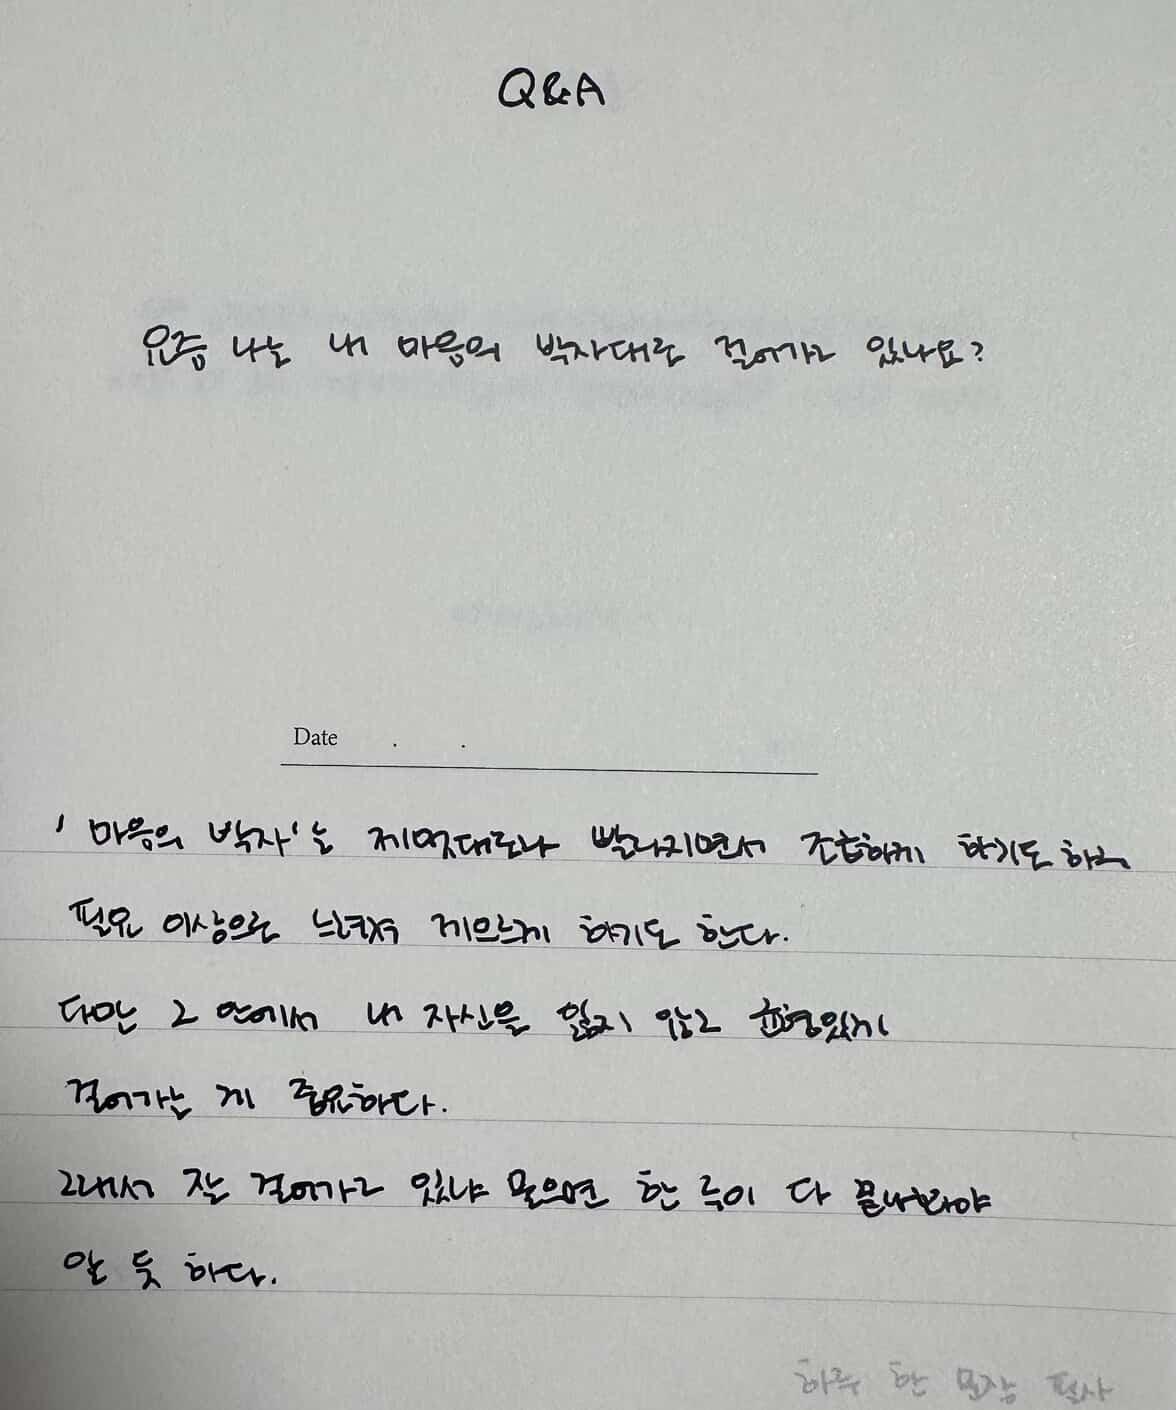 Q&A
요즘 나는 내 마음의 박자대로 걸어가고 있나요?
Date . .
'마음의 박자'는 제멋대로나 빨라지면서 조급하게 하기도 하고
필요 이상으로 느려져 게으르게 하기도 한다.
다만 그 안에서 내 자신을 잃지 않고 균형있게
걸어가는 게 중요하다.
그래서 잘 걸어가고 있냐 물으면 한 곡이 다 끝나봐야
알 듯 하다.
하루 한 문장 필사